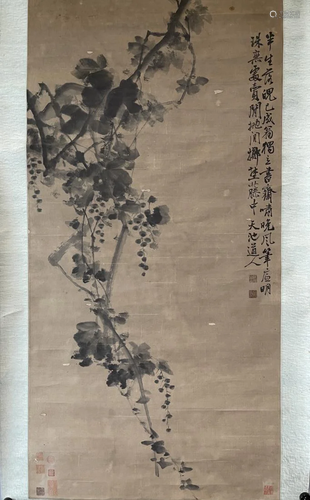 半生落魄已成翁獨立書齋嘯晚風筆底明
珠無處賣閒拋閒擲埜藤中天池道人